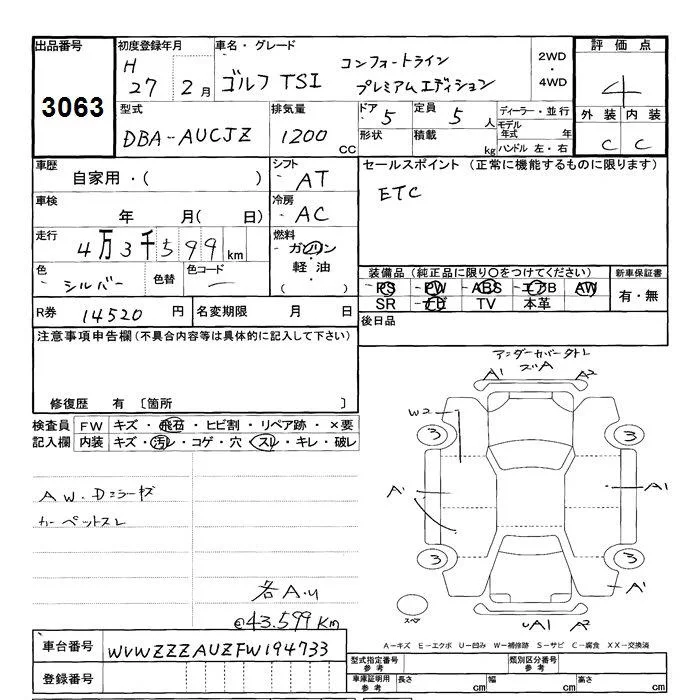 出品番号 初度登録年月 車名・グレード 2WD・4WD 評価点
3063 H 27 2月 ゴルフ TSI コンフォートライン
プレミアムエディション 4
型式 排気量 ドア 定員 ディーラー・並行 外装 内装
DBA-AUCJZ 1200 CC ・5 5人 モデル年式 年 C C
形状 積載 kg ハンドル 左・右
車歴 シフト セールスポイント (正常に機能するものに限ります)
自家用・( ) ・AT ETC
車検 冷房
年 月( 日) ・AC
走行 燃料
4万3千599 km ガソリン・軽油・( )
色 色替 色コード 装備品 (純正品に限り○をつけてください) 新車保証書
シルバー ー PS PW ABS エアB AW 有・無
SR ナビ TV 本革
R券 14520円 名変期限 月 日 後日品
注意事項申告欄 (不具合内容等は具体的に記入して下さい)
修復歴 有 〔箇所 〕
アンダーカバータトレ
ズリA
A1 A2
W2
3 3
A' A1
3 3
A'
スペア
A1 A2
検査員記入欄 FW キズ・飛石・ヒビ割・リペア跡・×要
内装 キズ・汚レ・コゲ・穴・スレ・キレ・破レ
AW.Dミラーキズ
カーペットスレ
各A.U
@43.599Km
A-キズ E-エクボ U-凹み W-補修跡 S-サビ C-腐食 XX-交換済
車台番号 WVWZZZAUZFW194733
登録番号
型式指定番号 参考 類別区分番号 参考
車庫証明用 参考 長さ cm 幅 cm 高さ cm